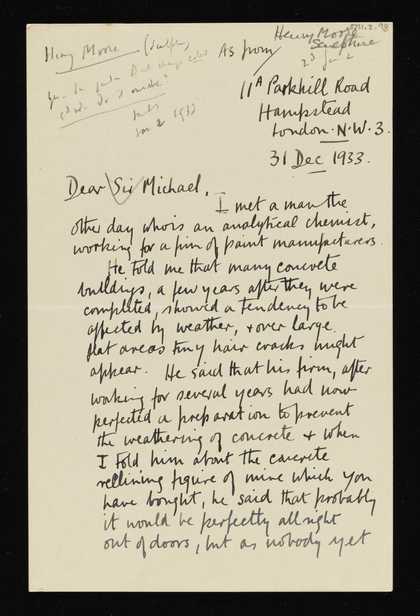 Henry Moore (Sculptor)
As from
Henry Moore
Sculpture
11A Parkhill Road
Hampstead
London. N.W.3.
31 Dec 1933.
Dear Sir Michael,
I met a man the
other day who is an analytical chemist,
working for a firm of paint manufacturers.
He told me that many concrete
buildings, a few years after they were
completed, showed a tendency to be
affected by weather, & over large
flat areas tiny hair cracks might
appear. He said that his firm, after
working for several years had now
perfected a preparation to prevent
the weathering of concrete & when
I told him about the concrete
reclining figure of mine which you
have bought, he said that probably
it would be perfectly allright
out of doors, but as nobody yet